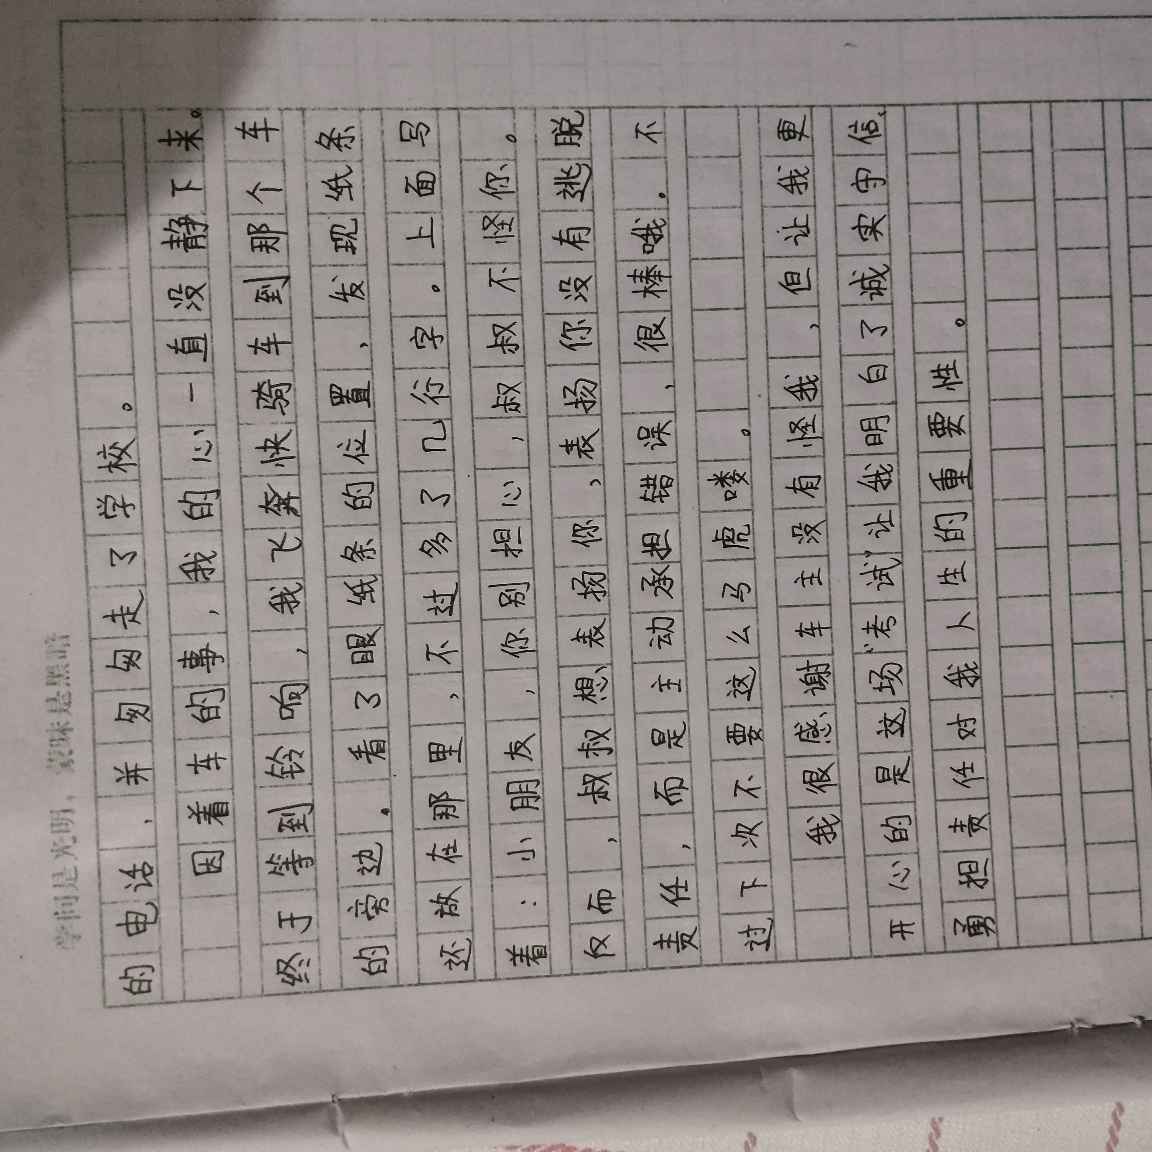 学问是光明，蒙昧是黑暗
的电话，并匆匆走了学校。
因着车的事，我的心一直没静下来。
终于等到铃响，我飞奔快骑车到那个车
的旁边。看了眼纸条的位置，发现纸条
还放在那里，不过多了几行字。上面写
着：小朋友，你别担心，叔叔不怪你。
反而，叔叔想表扬你，表扬你没有逃脱
责任，而是主动承担错误，很棒哦．不
过下次不要这么马虎喽。
我很感谢车主没有怪我，但让我更
开心的是这场“考试”让我明白了诚实守信、
勇担责任对我人生的重要性。